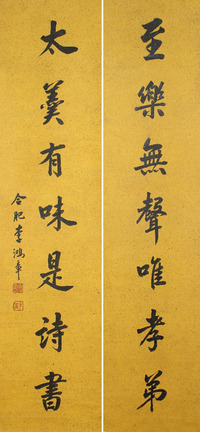 至樂無聲唯孝弟
太羹有味是詩書
合肥李鴻章